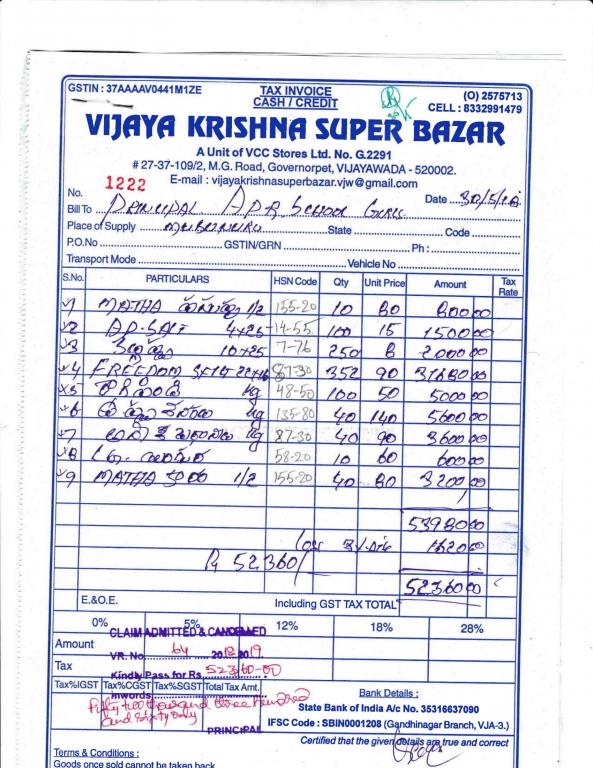 GSTIN : 37AAAAV0441M1ZE
TAX INVOICE
CASH / CREDIT
(O) 2575713
CELL : 8332991479
VIJAYA KRISHNA SUPER BAZAR
A Unit of VCC Stores Ltd. No. G.2291
# 27-37-109/2, M.G. Road, Governorpet, VIJAYAWADA - 520002.
E-mail : vijayakrishnasuperbazar.vjw@gmail.com
No. 1222
Date 30/5/18
Bill To PRINCIPAL APR SCHOOL GIRLS
Place of Supply State Code
P.O.No GSTIN/GRN Ph :
Transport Mode Vehicle No
S.No. PARTICULARS HSN Code Qty Unit Price Amount Tax Rate
1 MATHA 1/2 155-20 10 80 800 00
2 AP-SALT 4x25 14-55 100 15 1500 00
3 10x25 7-76 250 8 2000 00
4 FREEDOM 87-30 352 90 31680 00
5 kg 48-50 100 50 5000 00
6 kg 135-80 40 140 5600 00
7 kg 87-30 40 90 3600 00
8 58-20 10 60 600 00
9 MATHA 1/2 155-20 40 80 3200 00
53980 00
Less 3% 1620 00
Rs 52360/
52360 00
E.& O.E. Including GST TAX TOTAL
0% 5% 12% 18% 28%
CLAIM ADMITTED & CANCELLED
Amount
VR. No. 64 2018 2019
Tax
Kindly Pass for Rs. 52360-00
Tax%IGST Tax%CGST Tax%SGST Total Tax Amt.
Inwords
Fifty two thousand three hundred
and sixty only
PRINCIPAL
Bank Details :
State Bank of India A/c No. 35316637090
IFSC Code : SBIN0001208 (Gandhinagar Branch, VJA-3.)
Certified that the given details are true and correct
Terms & Conditions :
Goods once sold cannot be taken back